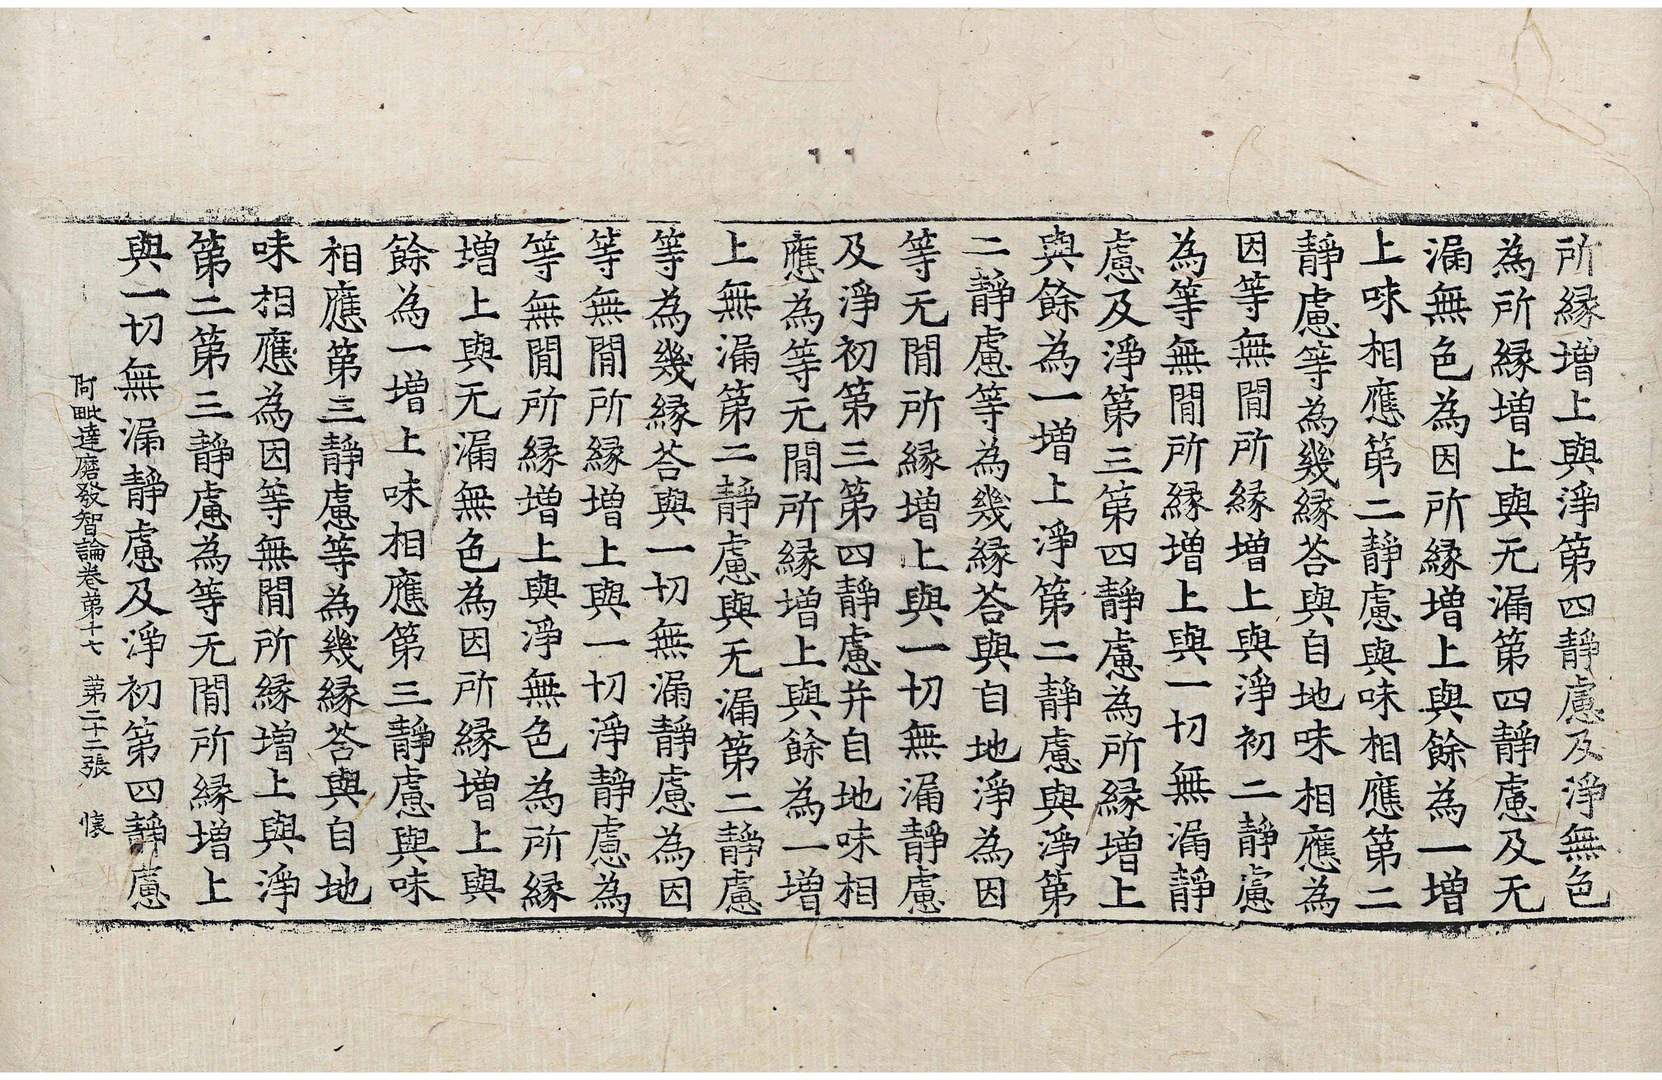 所縁増上與淨第四靜慮及淨無色
為所縁増上與无漏第四靜慮及无
漏無色為因所縁増上與餘為一増
上味相應第二靜慮與味相應第二
靜慮等為幾縁荅與自地味相應為
因等無閒所縁増上與淨初二靜慮
為等無閒所縁増上與一切無漏靜
慮及淨第三第四靜慮為所縁増上
與餘為一増上淨第二靜慮與淨第
二靜慮等為幾縁荅與自地淨為因
等无閒所縁増上與一切無漏靜慮
及淨初第三第四靜慮并自地味相
應為等无閒所縁増上與餘為一増
上無漏第二靜慮與无漏第二靜慮
等為幾縁荅與一切無漏靜慮為因
等無閒所縁増上與一切淨靜慮為
等無閒所縁増上與淨無色為所縁
増上與无漏無色為因所縁増上與
餘為一増上味相應第三靜慮與味
相應第三靜慮等為幾縁荅與自地
味相應為因等無閒所縁増上與淨
第二第三靜慮為等无閒所縁増上
與一切無漏靜慮及淨初第四靜慮
阿毗達磨發智論卷苐十七 苐二十二張 懐